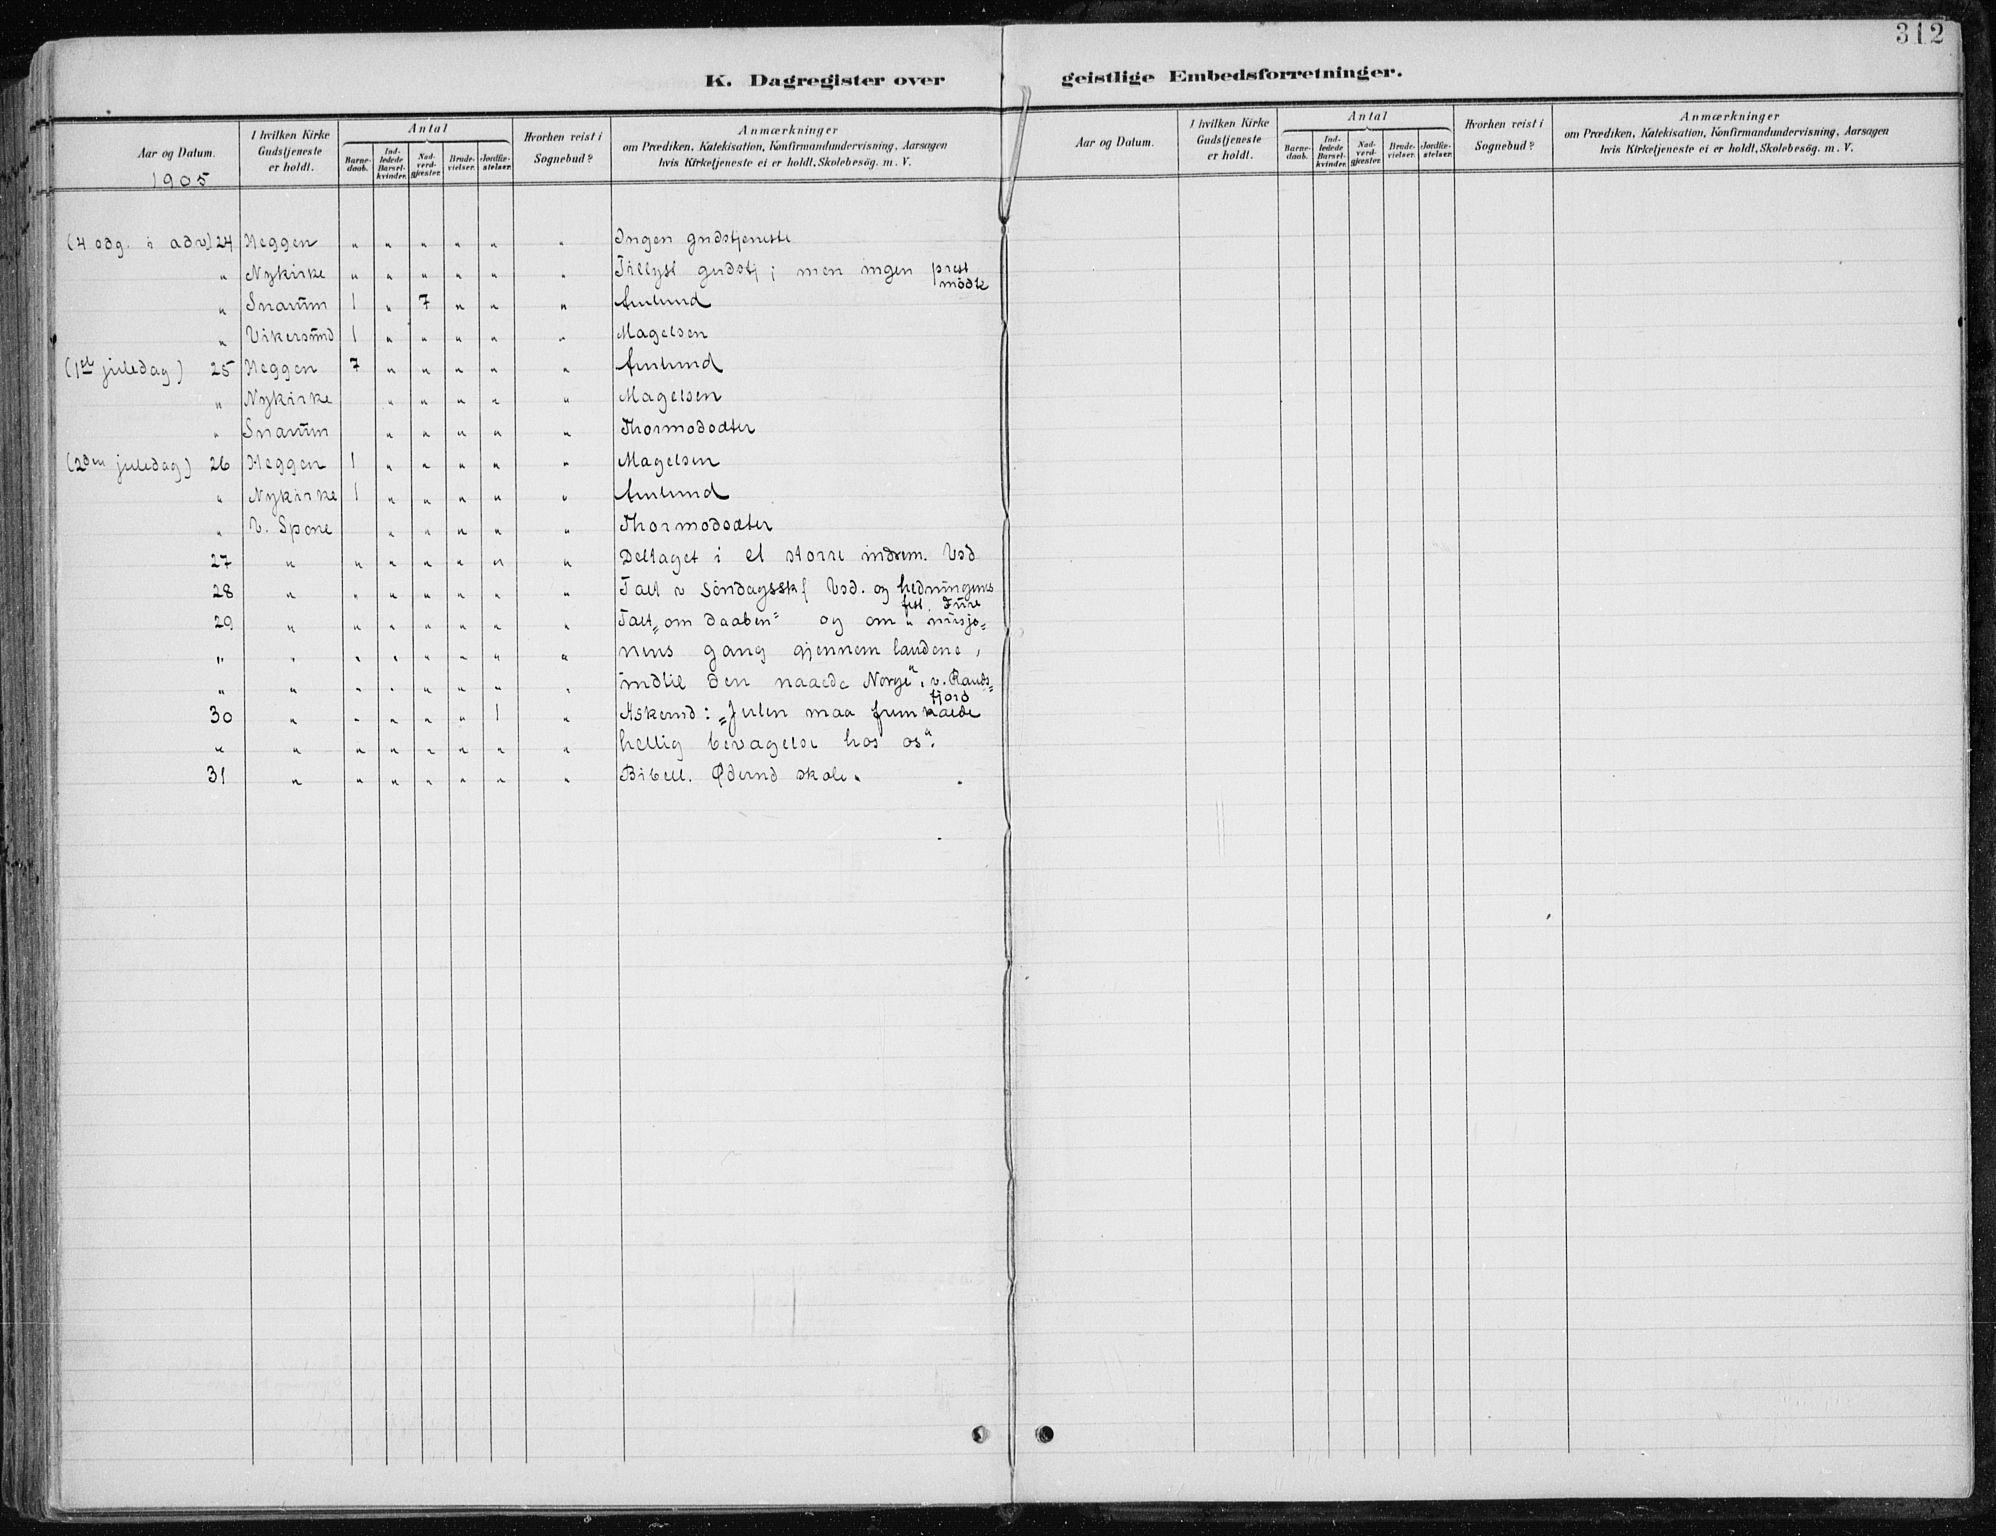 312
K. Dagregister over geistlige Embedsforretninger.
Aar og Datum. | I hvilken Kirke Gudstjeneste er holdt. | Antal | Barnedaab. | Indledede Barselkvinder. | Nadverdgjæster. | Brudevielser. | Jordfæstelser. | Hvorhen reist i Sognebud? | Anmærkninger om Prædiken, Katekisation, Konfirmandundervisning, Aarsagen hvis Kirketjeneste ei er holdt, Skolebesøg. m. V.
1905
(4 sdg. i adv) 24 | Heggen | " | " | " | " | " | " | Ingen gudstjeneste
" | Nykirke | " | " | " | " | " | " | Tillyst gudstj; men ingen prest mødte
" | Snarum | 1 | " | 7 | " | " | " | Amlund
" | Vikersund | 1 | " | " | " | " | " | Magelsen
(1ste juledag) 25 | Heggen | 7 | " | " | " | " | " | Amlund
" | Nykirke | | " | " | " | " | " | Magelsen
" | Snarum | | " | " | " | " | " | Thormodsæter
(2den juledag) 26 | Heggen | 1 | " | " | " | " | " | Magelsen
" | Nykirke | 1 | " | " | " | " | " | Amlund
" | V. Spone | | " | " | " | " | " | Thormodsæter
27 | " | " | " | " | " | " | " | Deltaget i et større indrem. Vsd
28 | " | " | " | " | " | " | " | Talt v søndagssk Vsd. og hedningenes fest. Fure
29 | " | " | " | " | " | " | " | Talt „om daaben" og om „misjo=
" | " | " | " | " | " | " | " | nens gang gjennem landene,
" | " | " | " | " | " | " | " | indtil den naaede Norge". v. Rands=fjord
30 | " | " | " | " | " | 1 | " | Askerud: „Julen maa fremkalde
" | " | " | " | " | " | " | " | hellig bevægelse hos os".
31 | " | " | " | " | " | " | " | Bibell. Øderud skole.
Aar og Datum. | I hvilken Kirke Gudstjeneste er holdt. | Antal | Barnedaab. | Indledede Barselkvinder. | Nadverdgjæster. | Brudevielser. | Jordfæstelser. | Hvorhen reist i Sognebud? | Anmærkninger om Prædiken, Katekisation, Konfirmandundervisning, Aarsagen hvis Kirketjeneste ei er holdt, Skolebesøg. m. V.